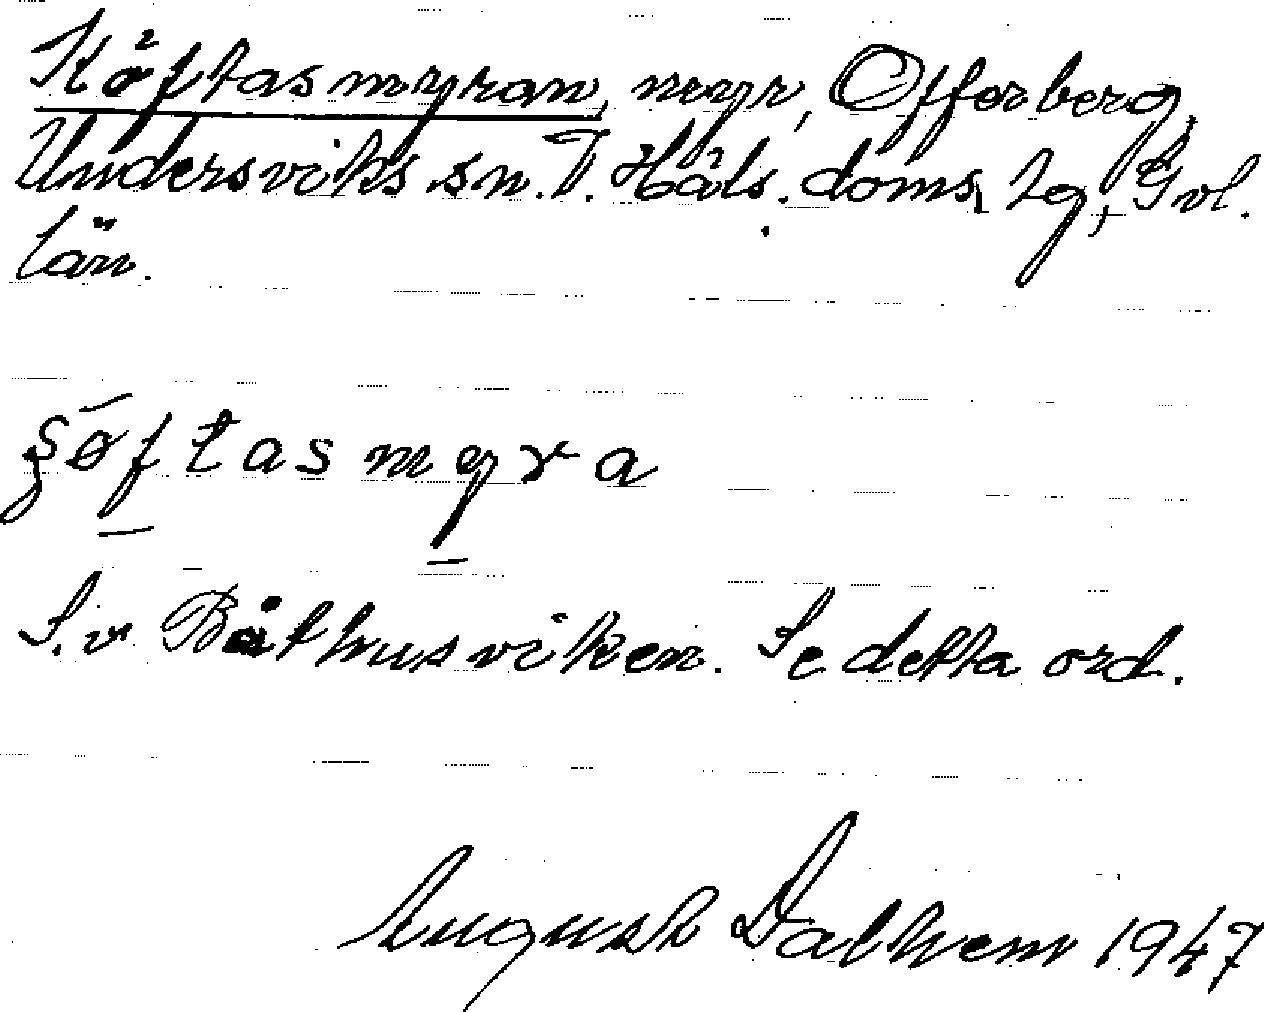 Köftasmyran, myr, Offerberg,
Undersviks sn. V. Häls. doms. lg, Gvl.
län.
şøftasmyra
S.v Båthusviken. Se detta ord.
August Dalhem 1947